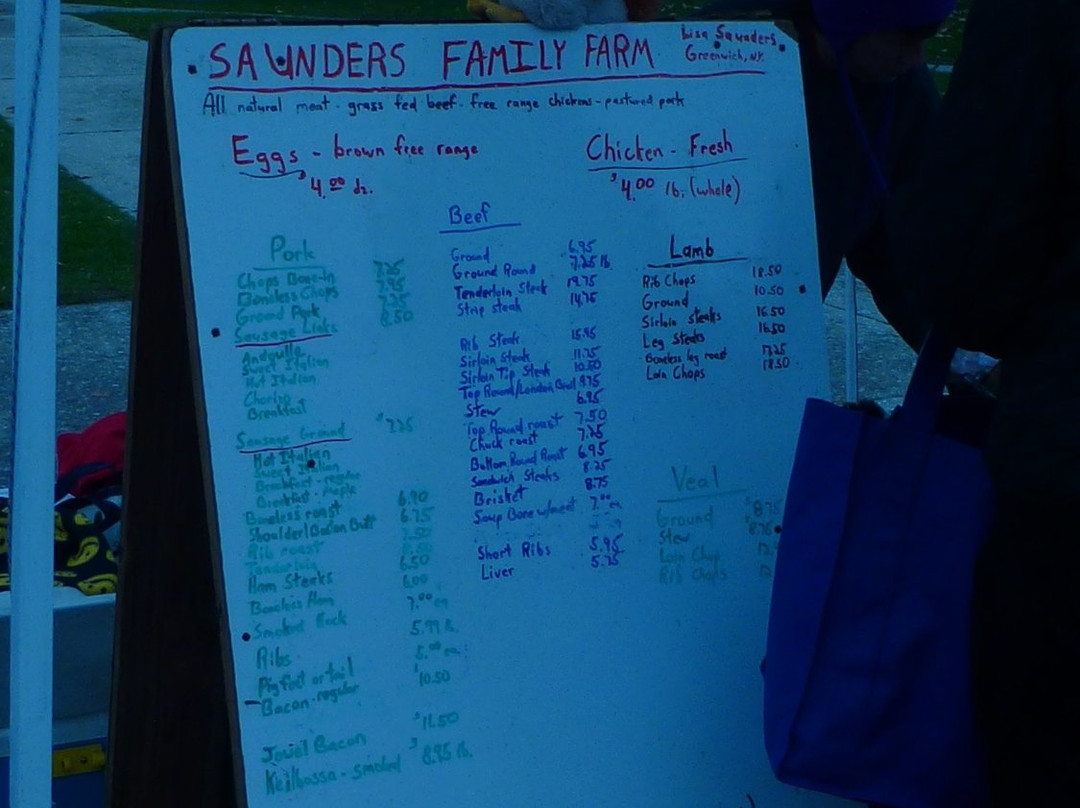 SAUNDERS FAMILY FARM
Lisa Saunders
Greenwich, NY.
All natural meat - grass fed beef - free range chickens - pastured pork
Eggs - brown free range
$4.00 dz.
Chicken - Fresh
$4.00 lb. (whole)
Pork
Chops Bone-in 7.25
Boneless Chops 7.95
Ground Pork 7.25
Sausage Links 8.50
Andouille
Sweet Italian
Hot Italian
Chorizo
Breakfast
Sausage Ground $7.25
Hot Italian
Sweet Italian
Breakfast - regular
Breakfast - maple
Boneless roast 6.90
Shoulder/Bacon Butt 6.75
Rib roast
Tenderloin
Ham Steaks 6.50
Boneless Ham 6.00
Smoked Hock 7.00 ea
Ribs 5.99 lb.
Pig feet or tail 5.00 ea.
Bacon - regular 10.50
Jowel Bacon $11.50
Keilbassa - smoked $8.95 lb.
Beef
Ground 6.95
Ground Round 7.25 lb
Tenderloin Steak 19.75
Strip steak 14.75
Rib Steak 15.95
Sirloin Steak 11.75
Sirloin Tip Steak 10.50
Top Round/London Broil 9.75
Stew 6.95
Top Round roast 7.50
Chuck roast 7.25
Bottom Round Roast 6.95
Sandwich Steaks 8.25
Brisket 8.75
Soup Bone w/meat 7.00 ea
Short Ribs 5.95
Liver 5.75
Lamb
Rib Chops 18.50
Ground 10.50
Sirloin steaks 16.50
Leg Steaks 16.50
Boneless leg roast 17.25
Loin Chops 18.50
Veal
Ground $8.75
Stew $8.75
Loin Chop
Rib Chops